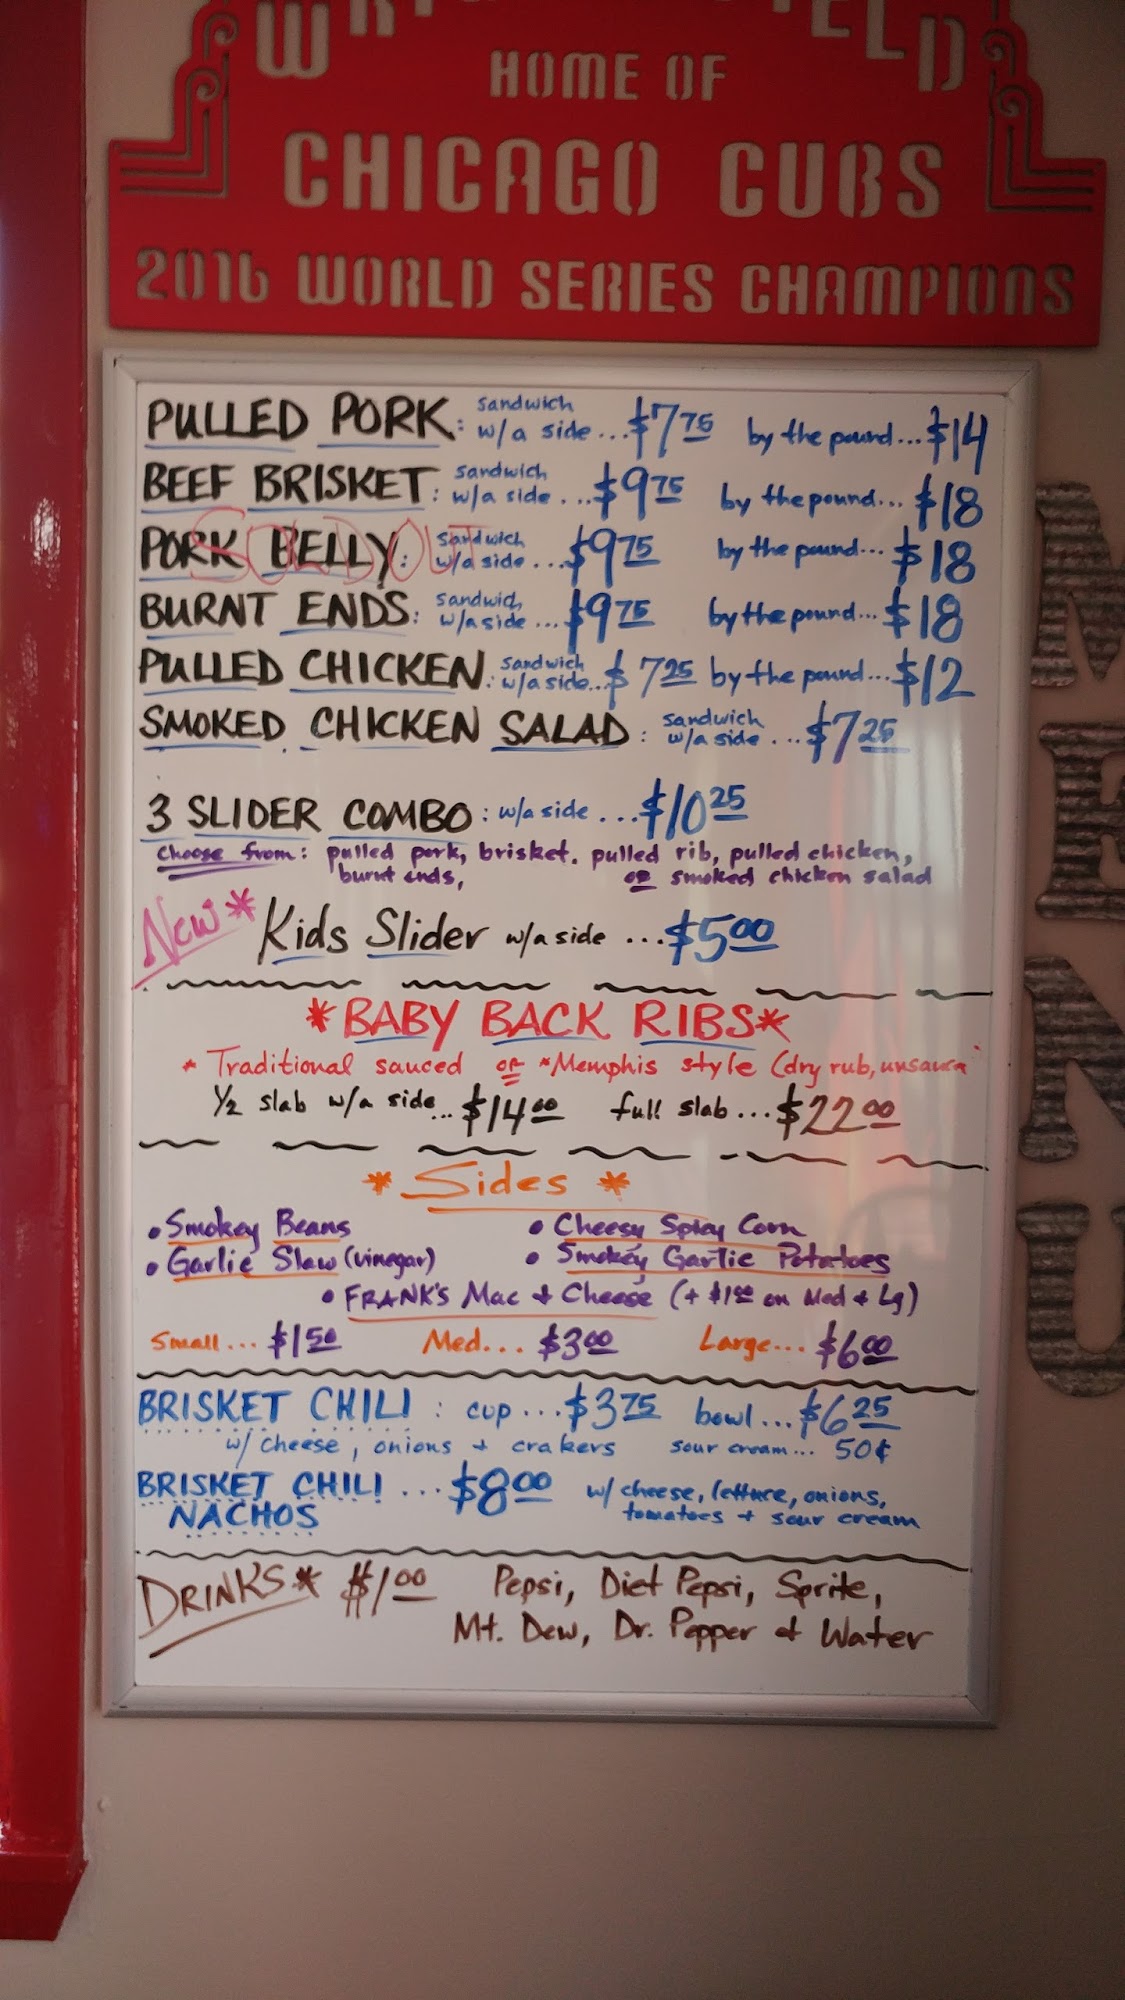 HOME OF
CHICAGO CUBS
2016 WORLD SERIES CHAMPIONS
PULLED PORK: sandwich w/a side...$7 75 by the pound...$14
BEEF BRISKET: sandwich w/a side...$9 75 by the pound...$18
PORK BELLY: sandwich w/a side...$9 75 by the pound...$18
SOLD OUT
BURNT ENDS: sandwich w/a side...$9 75 by the pound...$18
PULLED CHICKEN: sandwich w/a side...$7 25 by the pound...$12
SMOKED CHICKEN SALAD: sandwich w/a side...$7 25
3 SLIDER COMBO: w/a side...$10 25
choose from: pulled pork, brisket, pulled rib, pulled chicken,
burnt ends, or smoked chicken salad
New* Kids Slider w/a side...$5 00
*BABY BACK RIBS*
* Traditional sauced or *Memphis style (dry rub, unsauced
1/2 slab w/a side...$14 00 full slab...$22 00
* Sides *
• Smokey Beans • Cheesy Spicy Corn
• Garlic Slaw (vinegar) • Smokey Garlic Potatoes
• FRANK'S Mac + Cheese (+ $1 00 on Med + Lg)
Small...$1 50 Med...$3 00 Large...$6 00
BRISKET CHILI: cup...$3 75 bowl...$6 25
w/ cheese, onions + crakers sour cream... 50¢
BRISKET CHILI NACHOS ...$8 00 w/ cheese, lettuce, onions,
tomatoes + sour cream
DRINKS* $1 00 Pepsi, Diet Pepsi, Sprite,
Mt. Dew, Dr. Pepper + Water
MENU